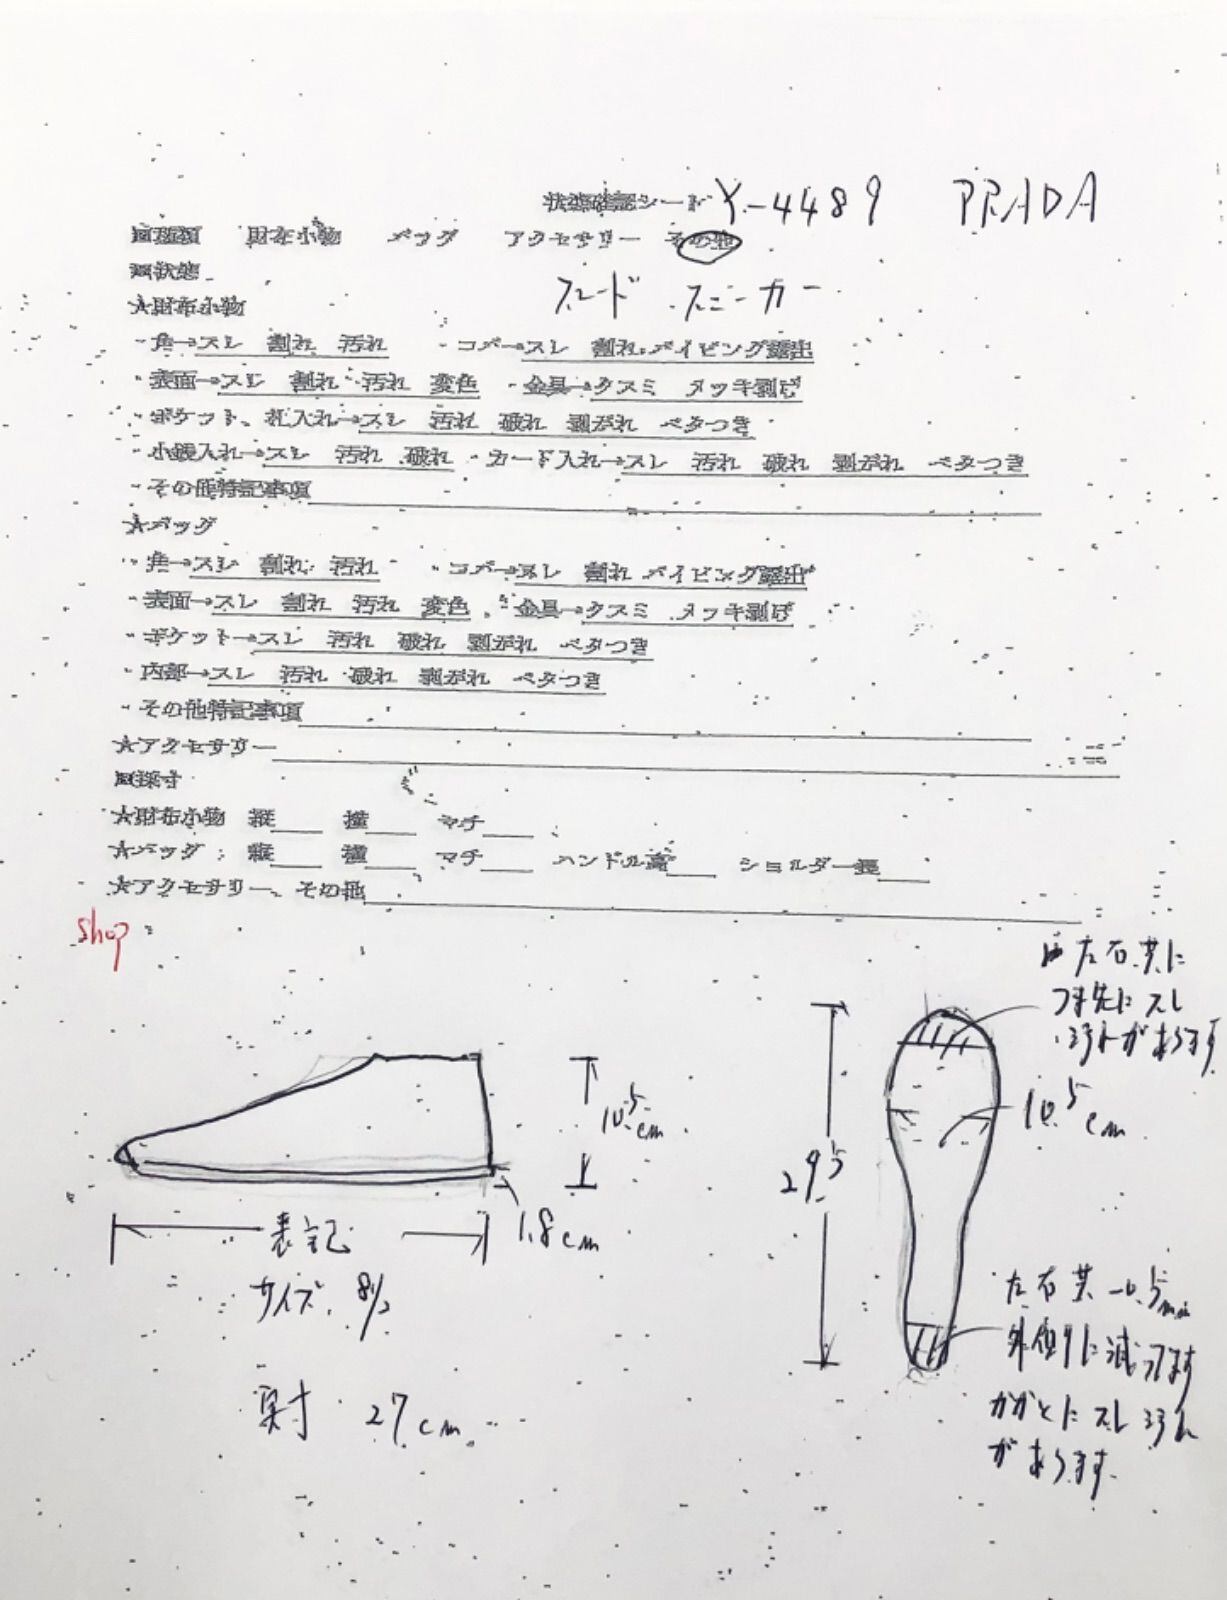 状態確認シート Y-4489 PRADA
■種類 財布小物 バッグ アクセサリー その他
■状態
スエード スニーカー
★財布小物
・角→スレ 割れ 汚れ ・コバ→スレ 割れ パイピング露出
・表面→スレ 割れ 汚れ 変色 ・金具→クスミ メッキ剥げ
・ポケット、札入れ→スレ 汚れ 破れ 剥がれ ベタつき
・小銭入れ→スレ 汚れ 破れ ・カード入れ→スレ 汚れ 破れ 剥がれ ベタつき
・その他特記事項
★バッグ
・角→スレ 割れ 汚れ ・コバ→スレ 割れ パイピング露出
・表面→スレ 割れ 汚れ 変色 ・金具→クスミ メッキ剥げ
・ポケット→スレ 汚れ 破れ 剥がれ ベタつき
・内部→スレ 汚れ 破れ 剥がれ ベタつき
・その他特記事項
★アクセサリー
■採寸
★財布小物 縦 横 マチ
★バッグ 縦 横 マチ ハンドル高 ショルダー長
★アクセサリー、その他
shop
左右共に
つま先にスレ
汚れがあります
10.5cm
10.5cm
29.5
1.8cm
表記
サイズ 8 1/2
実寸 27cm
左右共 -0.5mm
外側りに減ってます
かかとにスレ汚れ
があります